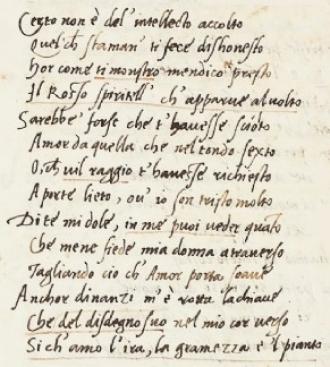 Certo non è del' intellecto accolto
Quel ch staman' ti fece dishonesto
Hor come ti mostro mendico presto
Il Rosso spiritell' ch' apparue al uolto
Sarebbe forse che t' hauesse sciolto
Amor da quella che nel tondo sexto
O ch uil raggio t' hauesse richiesto
A porte lieto, ou' io son tristo molto
Di te mi dole, in me puoi ueder quato
Che mene fiede mia donna atrauerso
Tagliando cio ch' Amor porta soaue
Anchor dinanzi m' è rotta la chiaue
Che del disdegno suo nel mio cor uerso
Si ch' amo l' ira, la gramezza e 'l pianto